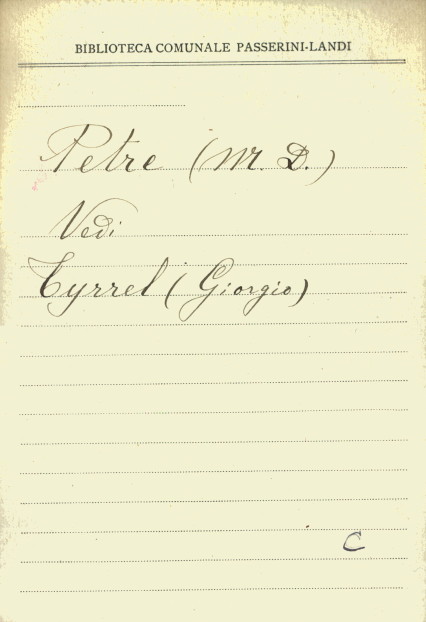 BIBLIOTECA COMUNALE PASSERINI-LANDI
Petre (M. D.)
Vedi
Tyrrel (Giorgio)
C